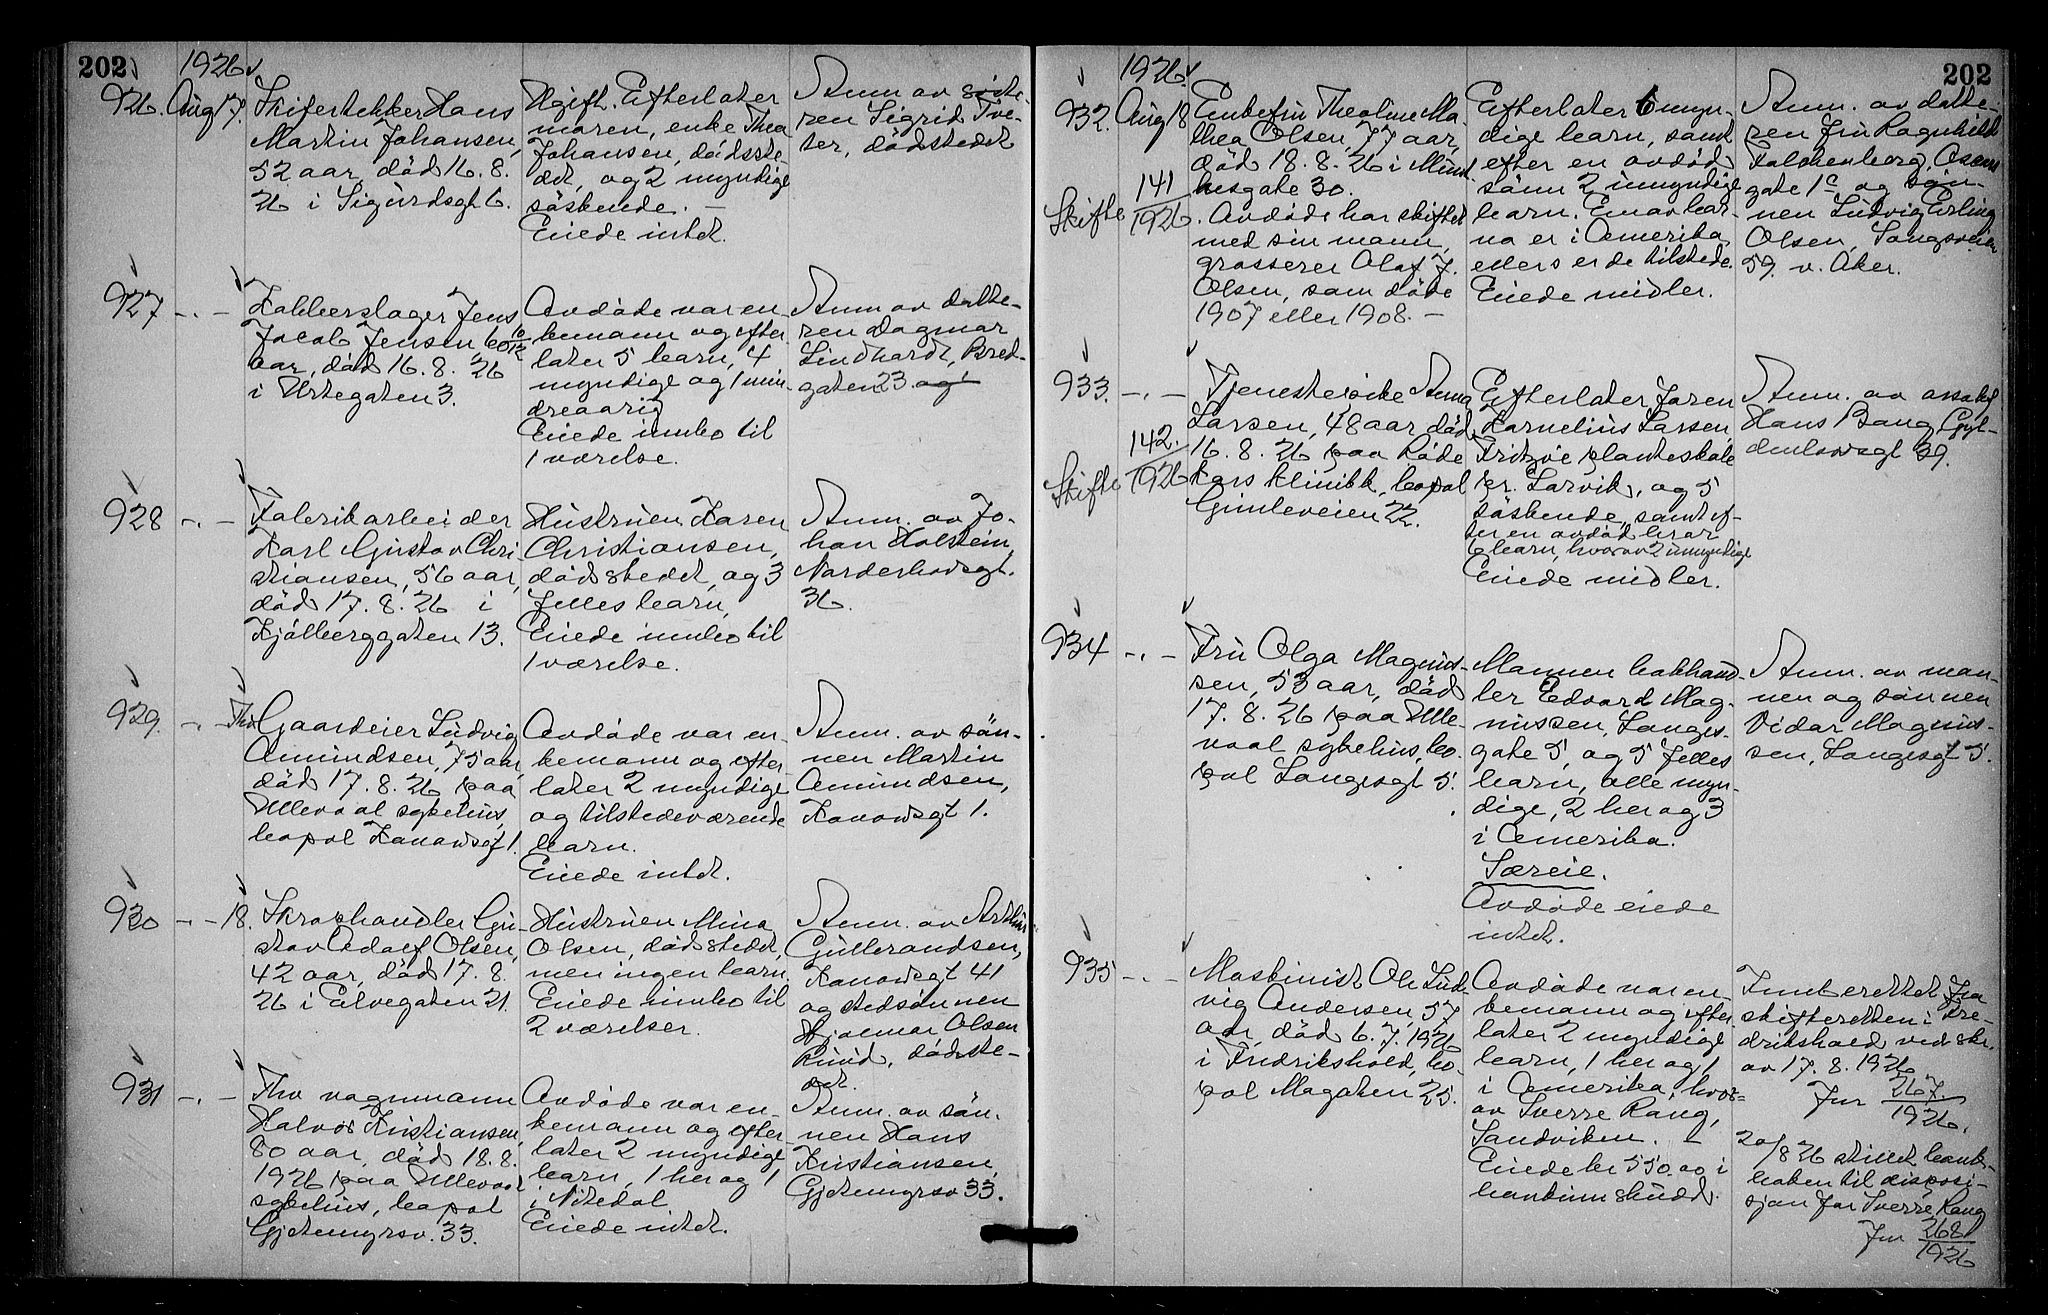 202
1926
926. Aug 17. Skifertekker Hans
Martin Johansen,
52 aar, död 16. 8.
26 i Sigurdsgt 6.
Ugift. Efterlater
moren, enke Thea
Johansen, dödsste-
det, og 2 myndige
söskende. —
Eiede intet.
Anm. av söste-
ren Sigrid Tve-
ter, dödsstedet
927 -.- Kobberslager Jens
Jacob Jensen 60 10/12
aar, död 16. 8. 26
i Urtegaten 3.
Avdöde var en-
kemann og efter-
later 5 barn, 4
myndige og 1 min-
dreaarig
Eiede innbo til
1 værelse.
Anm. av datte-
ren Dagmar
Lindhardt, Bred-
gaten 23. og
928 -.- Fabrikarbeider
Karl Gustav Chri
stiansen, 56 aar,
död 17. 8. 26 i
Kjölberggaten 13.
Hustruen Karen
Christiansen,
dödsstedet, og 3
felles barn,
Eiede innbo til
1 værelse.
Anm. av Jo-
han Holstein,
Norderhovsgt.
36.
929. -.- Gaardeier Ludvig
Amundsen, 75 aar,
död 17. 8. 26 paa
Ullevaal sykehus,
bopæl Kanonsgt 1.
Avdöde var en-
kemann og efter-
later 2 myndige
og tilstedeværende
barn.
Eiede intet.
Anm. av sön-
nen Martin
Amundsen,
Kanonsgt 1.
930 -.- 18. Skraphandler Gu-
stav Adolf Olsen,
42 aar, död 17. 8.
26 i Elvegaten 21.
Hustruen Mina
Olsen, dödsstedet,
men ingen barn.
Eiede innbo til
2 værelser.
Anm. av Arthur
Gulbrandsen,
Kanonsgt 41
og stedsönnen
Hjalmar Olsen
Ruud, dödsste-
det.
931 -.- Fhv vognmann
Halvor Kristiansen,
80 aar, död 18.8.
1926 paa Ullevaal
sykehus, bopæl
Gjetemyrsv. 33.
Avdöde var en-
kemann og efter-
later 2 myndige
barn, 1 her og 1
i Nitedal
Eiede intet.
Anm. av sön-
nen Hans
Kristiansen,
Gjetemyrsv 33.
202
1926.
932. Aug 18 Enkefru Theoline Ma-
thea Olsen, 77 aar,
död 18. 8. 26 i Munk
hesgate 30.
Avdöde har skiftet
med sin mann,
grosserer Olaf J.
Olsen, som döde
1907 eller 1908. —
Skifte 141/1926
Efterlater 6 myn-
dige barn, samt
efter en avdöd
sönn 2 umyndige
barn. En av bar-
na er i Amerika
ellers er de tilstede.
Eiede midler.
Anm. av datte-
ren fru Ragnhild
Falchenberg, Oscars
gate 1c og sön-
nen Ludvig Erling
Olsen, Sangsveien
59. v. Aker.
933. -.- Tjenestepike Anna
Larsen, 48 aar död
16. 8. 26 paa Röde
Kors klinikk, bopæl
Gimleveien 22.
Skifte 142./1926
Efterlater faren
Karnelius Larsen,
Fritzöe planteskole
pr. Larvik, og 5
söskende, samt ef-
ter en avdöd bror
6 barn, hvorav 2 umyndige
Eiede midler.
Anm. av
Hans Bang, Gyl-
denlövesgt 39.
934 -.- Fru Olga Magnus-
sen, 53 aar, död
17. 8. 26 paa Ulle-
vaal sykehus, bo-
pæl Langesgt 5.
Mannen bokhand-
ler Edvard Mag-
nussen, Langes-
gate 5, og 5 felles
barn, alle myn-
dige, 2 her og 3
i Amerika.
Særeie.
Avdöde eiede
intet.
Anm. av man-
nen og sönnen
Vidar Magnus-
sen, Langesgt 5.
935 -.- Maskinist Ole Lud-
vig Andersen, 57
aar, död 6. 7. 1926
i Fredrikshald, bo-
pæl Magaten 25.
Avdöde var en-
kemann og efter-
later 2 myndige
barn, 1 her og 1
i Amerika, hvor-
av Sverre Rang,
Sandviken. —
Eiede kr 550.00 i
bankinnskudd.
Innberettet fra
skifteretten i Fre-
drikshald ved skr.
av 17. 8. 1926
Jnr 267/1926.
20/8 26 stillet bank-
boken til disposi-
sjon for Sverre Rang
Jnr 268/1926